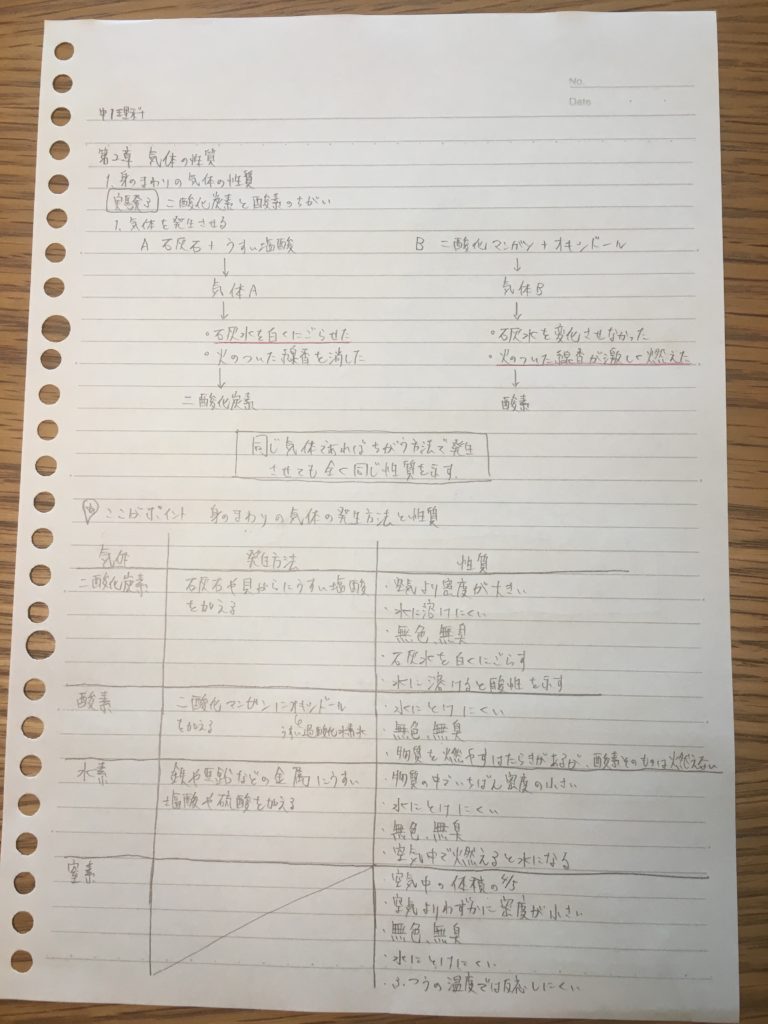 No.
Date
中1理科
第2章 気体の性質
1. 身のまわりの気体の性質
実験3 二酸化炭素と酸素のちがい
1. 気体を発生させる
A 石灰石+うすい塩酸
↓
気体A
↓
・石灰水を白くにごらせた
・火のついた線香を消した
↓
二酸化炭素
B 二酸化マンガン+オキシドール
↓
気体B
↓
・石灰水を変化させなかった
・火のついた線香が激しく燃えた
↓
酸素
同じ気体であればちがう方法で発生
させても全く同じ性質を示す.
ここがポイント 身のまわりの気体の発生方法と性質
気体 発生方法 性質
二酸化炭素
石灰石や貝がらにうすい塩酸
を加える
・空気より密度が大きい
・水に溶けにくい
・無色、無臭
・石灰水を白くにごらす
・水に溶けると酸性を示す
酸素
二酸化マンガンにオキシドール
を加える
うすい過酸化水素水
・水にとけにくい
・無色、無臭
・物質を燃やすはたらきがあるが、酸素そのものは燃えない
水素
鉄や亜鉛などの金属にうすい
塩酸や硫酸を加える
・物質の中でいちばん密度の小さい
・水にとけにくい
・無色、無臭
・空気中で燃えると水になる
窒素
・空気中の体積の4/5
・空気よりわずかに密度が小さい
・無色、無臭
・水にとけにくい
・ふつうの温度では反応しにくい